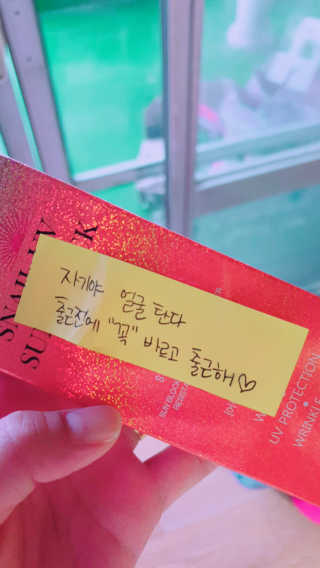 자기야 얼굴 탄다
출근전에 "꼭" 바르고 출근해♡
SNAIL
SU
K
UV PROTECTION
WRINKLE